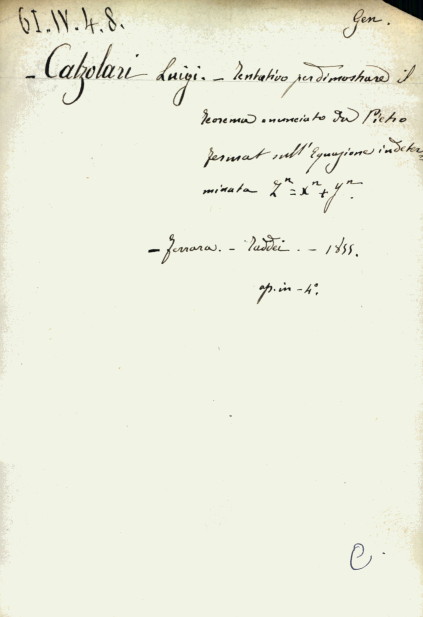 GI.IV.4.8.
Gen.
- Calzolari Luigi. - Tentativo per dimostrare il
teorema enunciato da Pietro
Fermat sull'Equazione indeter
minata Zⁿ = xⁿ + yⁿ.
- Ferrara. - Taddei. - 1855.
op. in - 4°.
C.